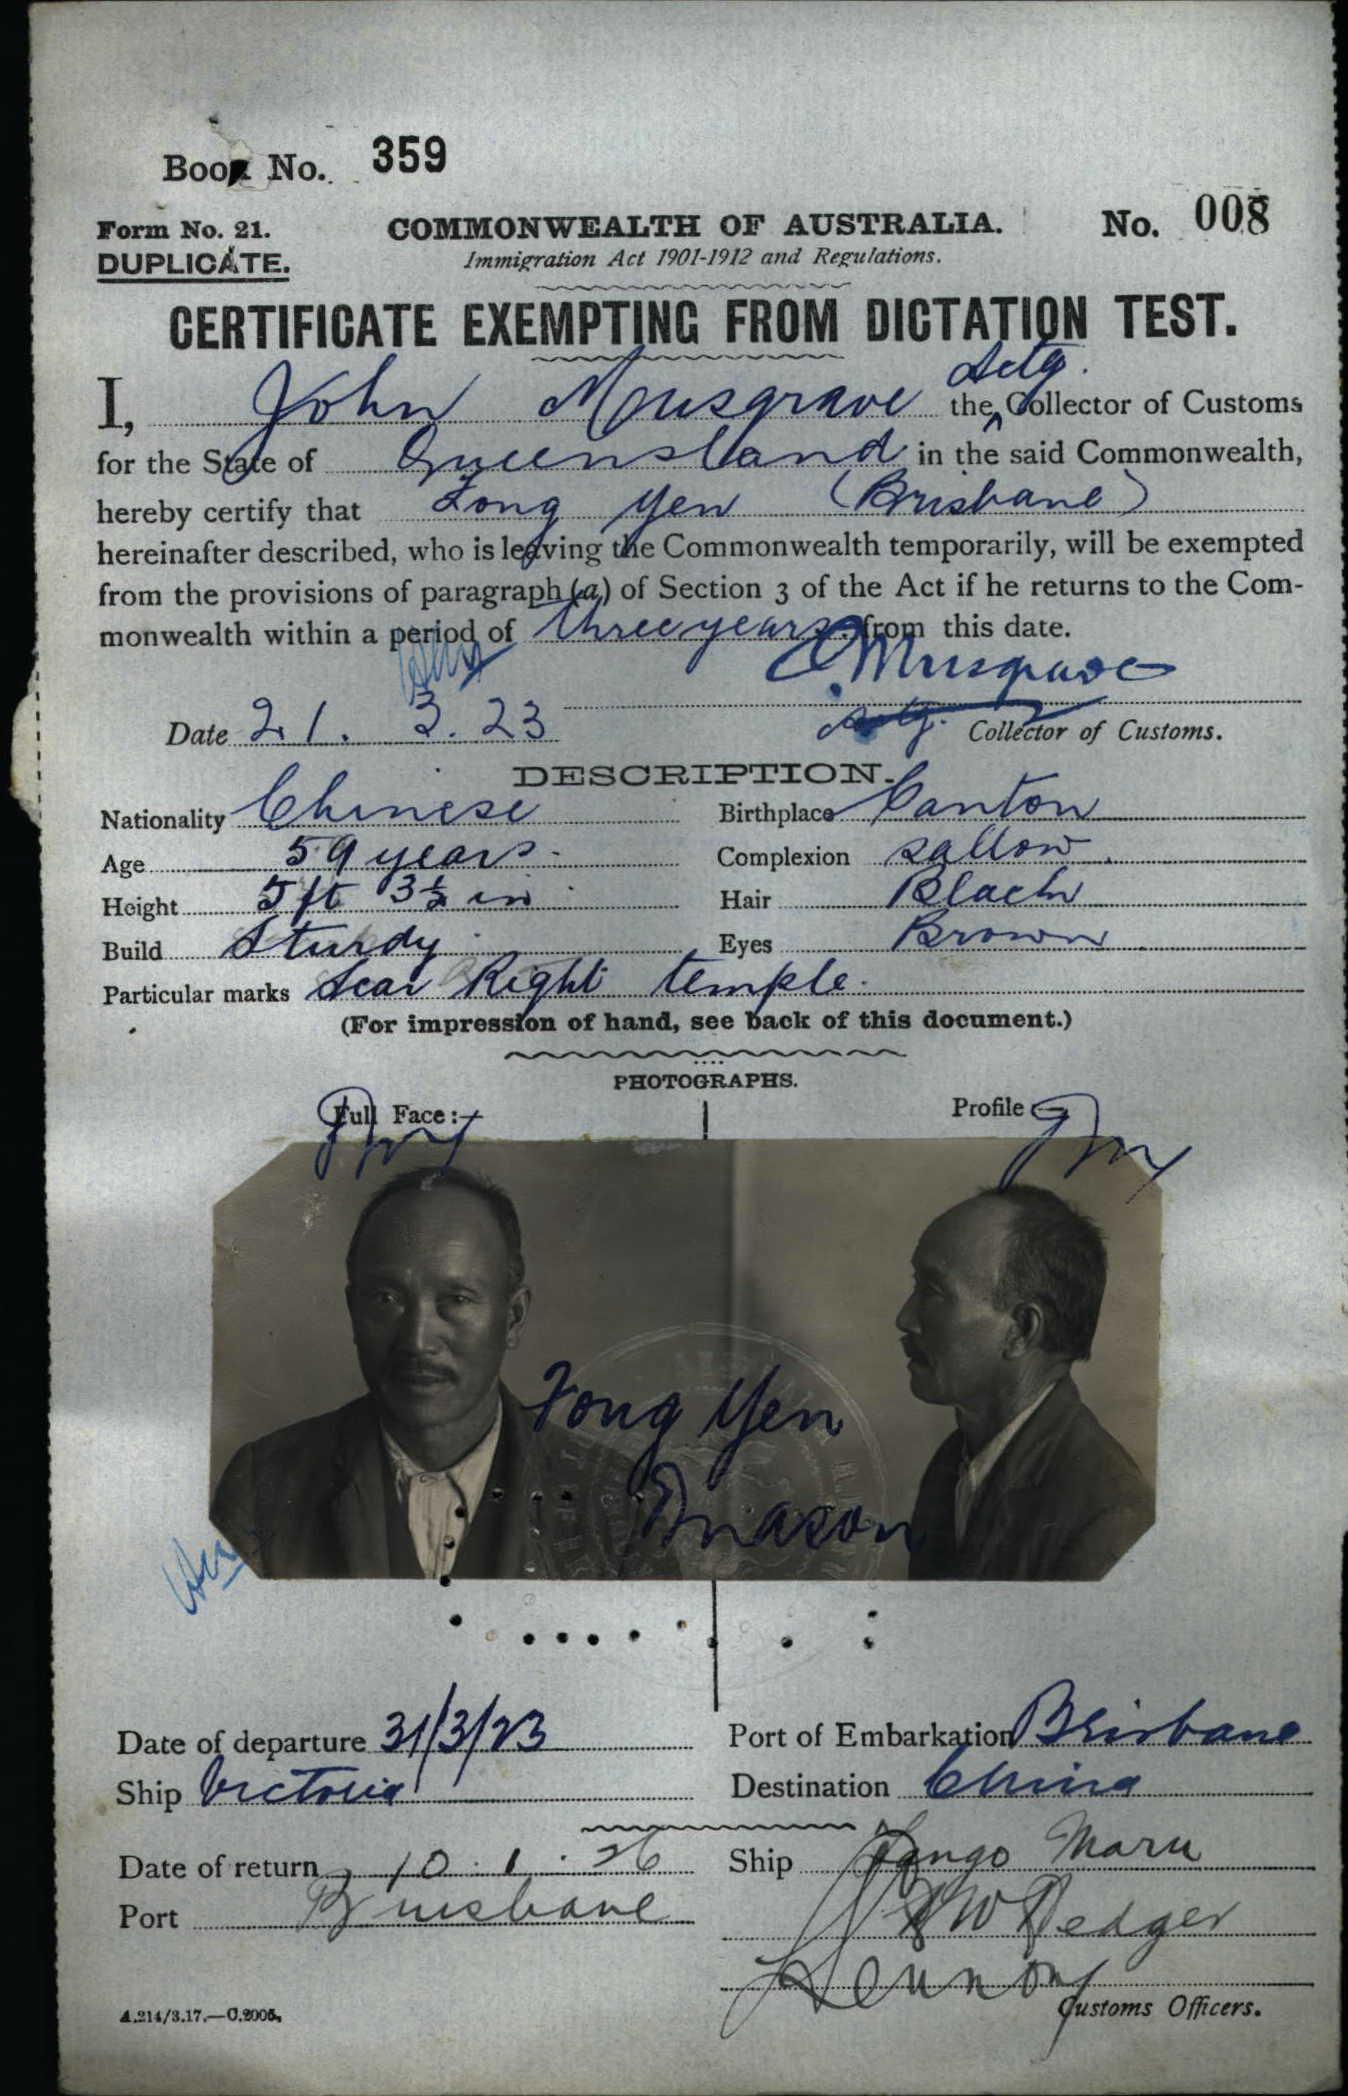 Book No. 359
Form No. 21. COMMONWEALTH OF AUSTRALIA. No. 008
DUPLICATE. Immigration Act 1901-1912 and Regulations.
CERTIFICATE EXEMPTING FROM DICTATION TEST.
Actg.
I, John Musgrave the ^ Collector of Customs
for the State of Queensland in the said Commonwealth,
hereby certify that Fong Yen (Brisbane)
hereinafter described, who is leaving the Commonwealth temporarily, will be exempted
from the provisions of paragraph (a) of Section 3 of the Act if he returns to the Com-
monwealth within a period of three years from this date.
Musgrave
Date 21. 3. 23 Actg. Collector of Customs.
DESCRIPTION.
Nationality Chinese Birthplace Canton
Age 59 years. Complexion sallow
Height 5 ft 3½ in Hair Black
Build Sturdy Eyes Brown
Particular marks Scar Right temple.
(For impression of hand, see back of this document.)
PHOTOGRAPHS.
Full Face:— Profile
Fong Yen
Mason
Date of departure 31/3/23 Port of Embarkation Brisbane
Ship Victoria Destination China
Date of return 10.1.26 Ship Tango Maru
Port Brisbane
Customs Officers.
A.214/3.17.—C.2005.